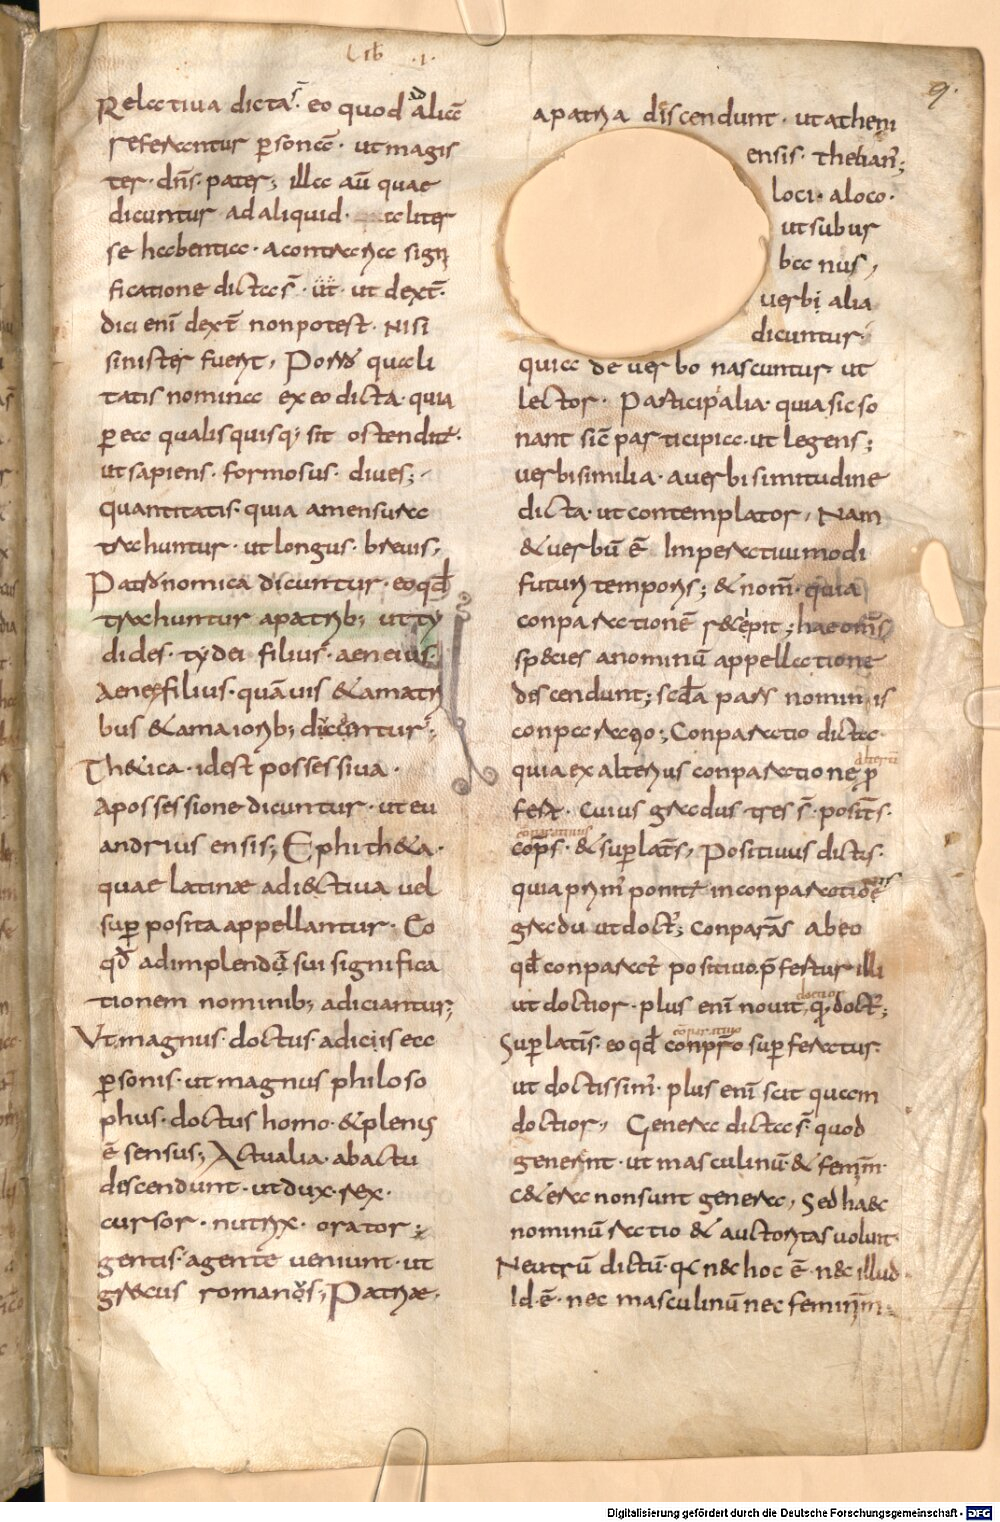 Lib .i.
9.
Relatiua dicta s̄ eo quod ad alicā
referantur p̱sonā · ut magis
ter · dn̄s · pater ; illa aū quae
dicuntur · ad aliquid · taliter
se habentia · a contraria signi
ficatione dicta s̄ · ut dext̄ ·
dici enī dext̄ non potest · nisi
sinister fuerit , Porro quali
tatis nomina ex eo dicta · quia
p̱ ea qualis quisq; sit ostenditur ·
ut sapiens · formosus · diues ;
quantitatis · quia a mensura
trahuntur · ut longus · breuis ,
Patronomica dicuntur · eo qđ
trahuntur a patrib; ut ty
dides · tydei filius · aeneius ·
Aeneę filius · quāuis & a matri
bus & a maiorib; dicantur ;
Th&ica · id est possessiua ·
A possessione dicuntur · ut eu
andrius ensis ; Ephith&a ·
quae latinae adi&ctiua uel
sup̱posita appellantur · Eo
qđ ad implendū sui significa
tionem nominib; adiciantur ;
Ut magnus · doctus · adicis ea
p̱sonis · ut magnus philoso
phus · doctus homo · & plenus
ē sensus ; Actualia · ab actu
descendunt · ut dux · rex ·
cursor · nutrix · orator ;
gentis · a gente ueniunt · ut
grecus romanus , Patriae ·
a patria discendunt · ut atheni
ensis · theban' ;
loci · a loco ·
ut subur
banus ,
uerbi alia
dicuntur
quia de uerbo nascuntur ut
lector · Participalia · quia sic so
nant sic participia · ut legens ;
uerbi similia · a uerbi similitudine
dicta · ut contemplator , Nam
& uerbū ē Imperatiui modi
futuri temporis ; & nom̄ · quia
conparationē r&cepit ; hae om̄s
species a nominū appellatione
discendunt ; scđa pars nominis
conparatio ; Conparatio dicta
quia ex alterius conparatione p̱
alterū
fert · Cuius gradus tres s̄ · posit̄s ·
conparatiuus
cōp̄s · & sup̱lat̄s , Positiuus dict's ·
quia prim' ponitur in conparatiōē
gradu ut doct' ; conparās ab eo
qđ conparat' positiuo p̄fertur illi
doctior
ut doctior · plus enī nouit q̄ doct' ;
conparatiuo
Sup̱latis̄ · eo qđ conp̄ro sup̱feratur ·
ut doctissim' · plus enī scit quam
doctior , Genera dicta s̄ quod
generent · ut masculinū · & femīn̄ ·
c&era non sunt genera , Sed haec
nominū ratio & auctoritas uoluit
Neutrū dictū · qa nec hoc ē · nec illud ·
Id · ē · nec masculinū nec feminīm ·
Digitalisierung gefördert durch die Deutsche Forschungsgemeinschaft - DFG